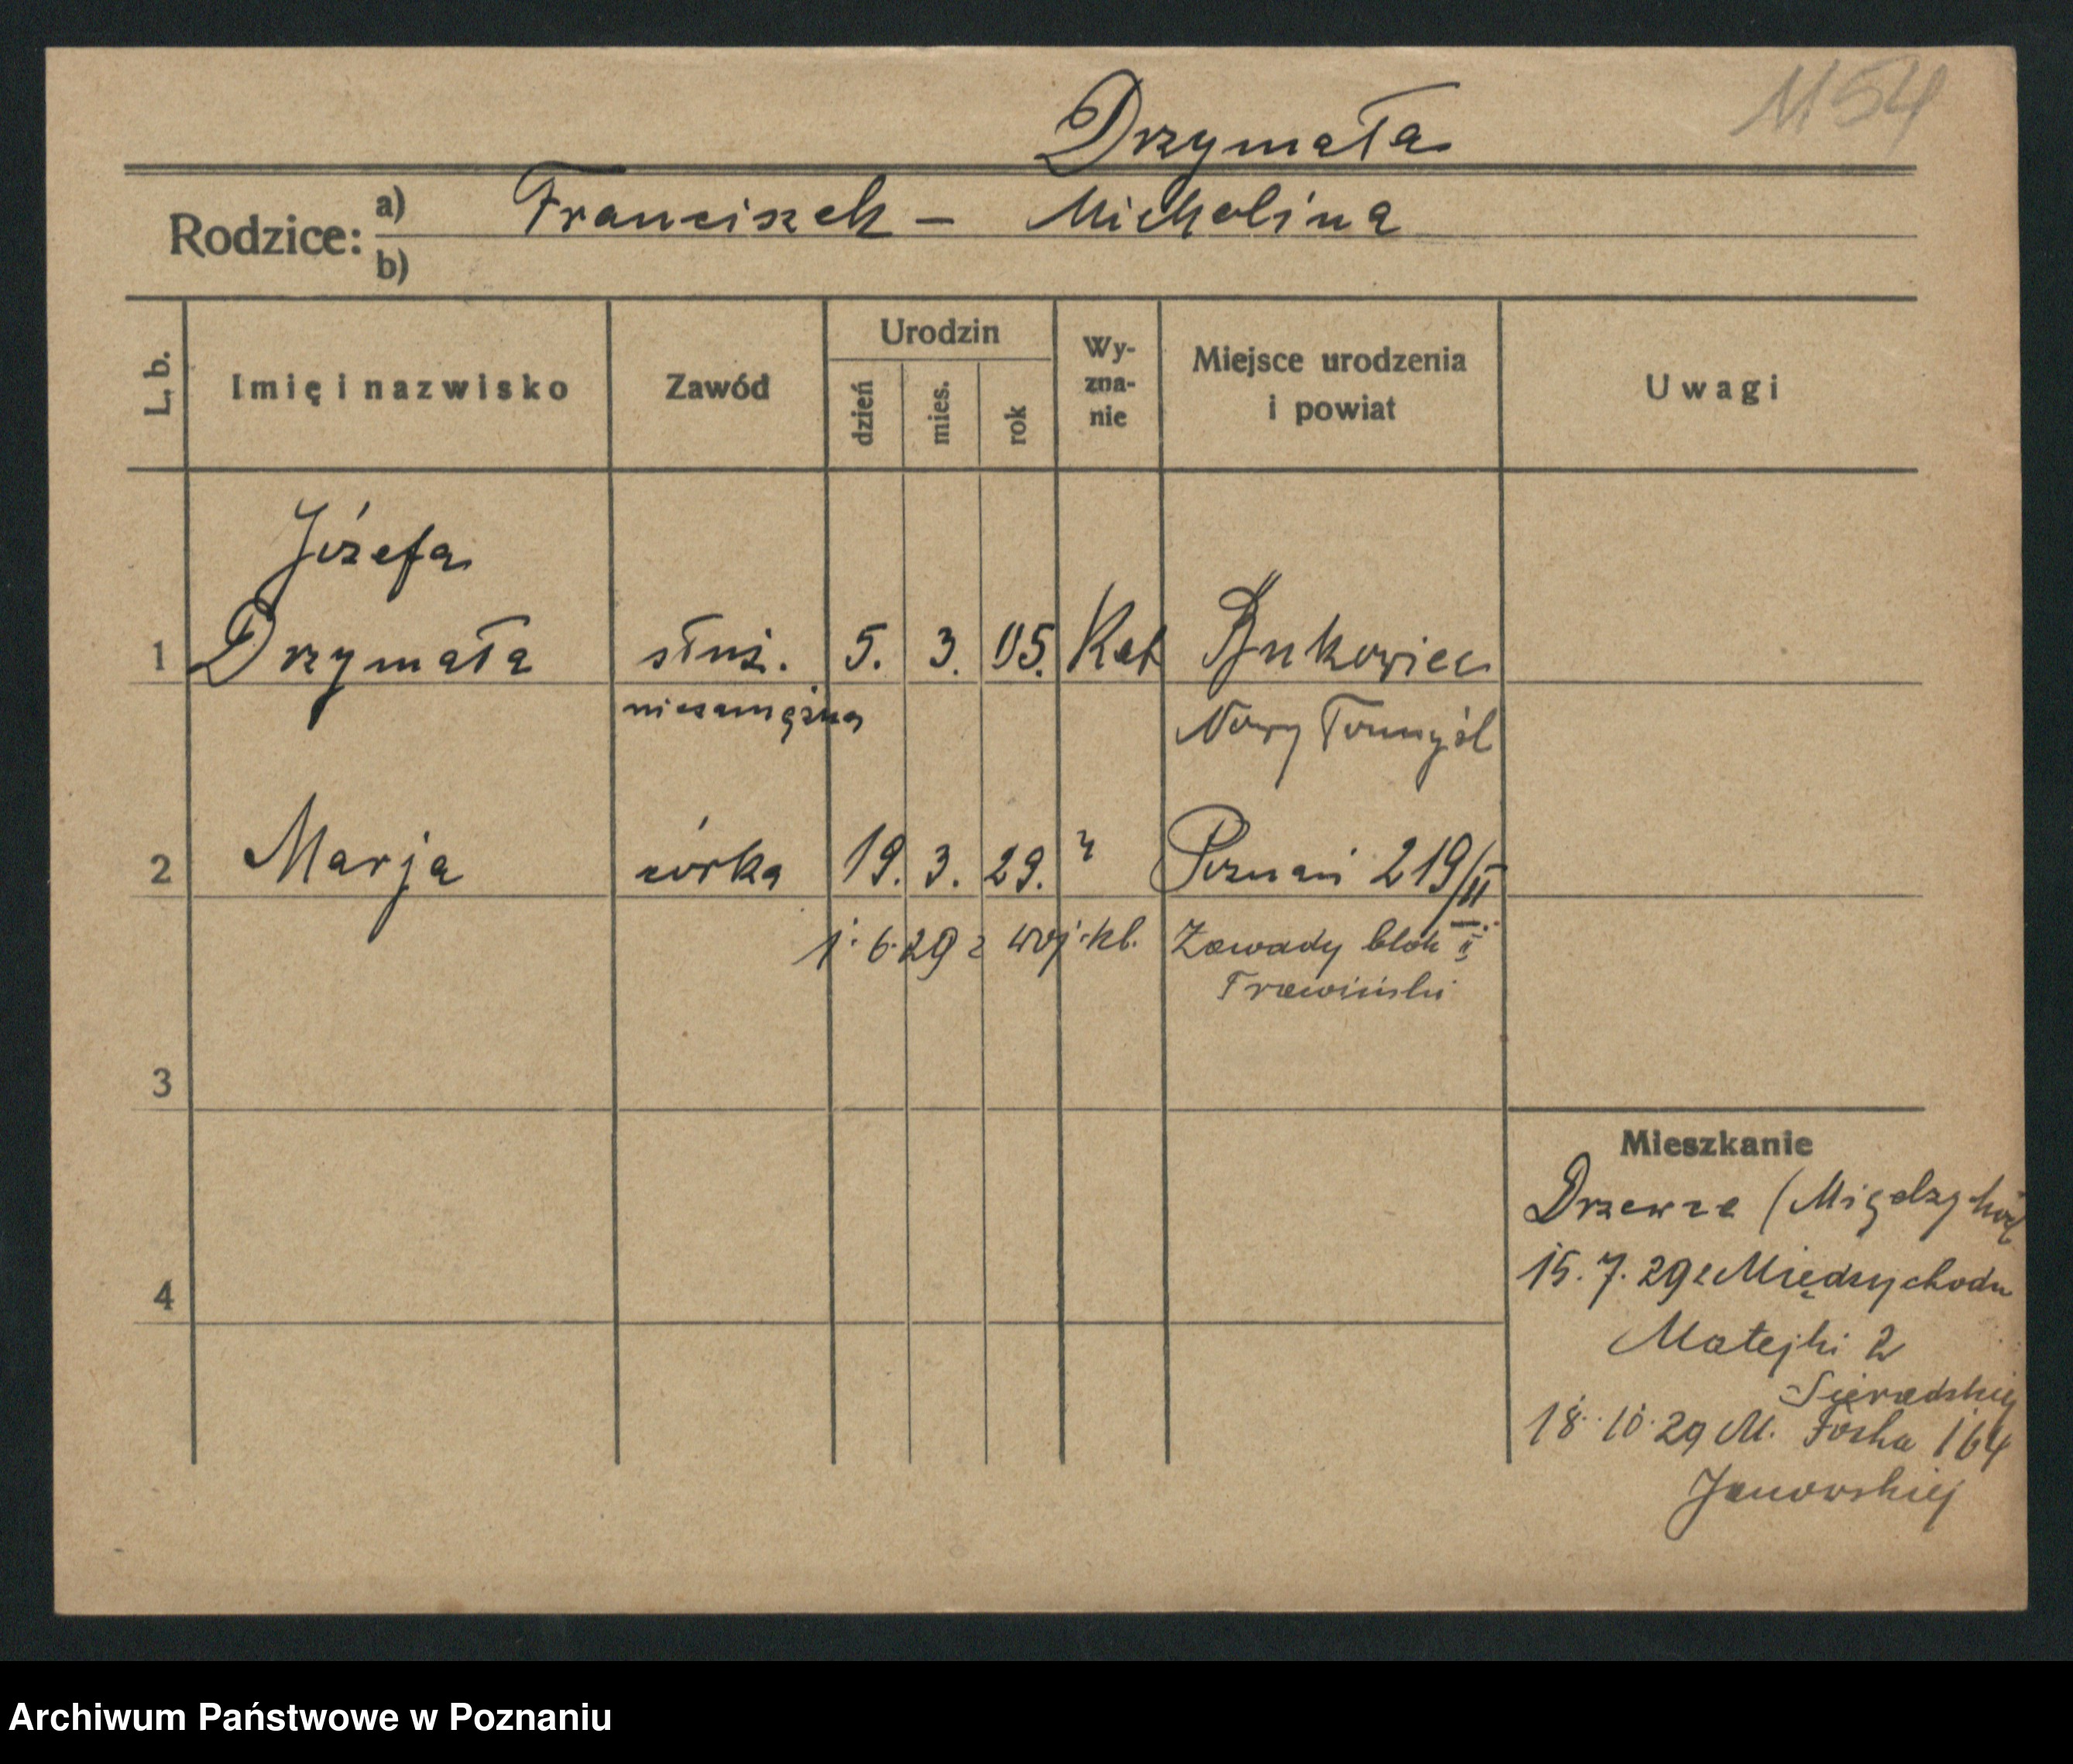 1154
Drzymała
Rodzice: a) Franciszek - Michalina
b)
L. b. Imię i nazwisko Zawód Urodzin dzień mies. rok Wy-zna-nie Miejsce urodzenia i powiat Uwagi
Józefa
1 Drzymała służ. 5. 3. 05. Kat Bukowiec
niezamężna Nowy Tomyśl
2 Marja córka 19. 3. 29. " Poznań 219/II
1. 6. 29 z woj. kl. Zawady blok II
Trawiński
3
Mieszkanie
Drzewce (Międzychód
15. 7. 29 z Międzychodu
4
Matejki 2
Sieradzkiej
18. 10. 29 M. Focha 164
Janowskiej
Archiwum Państwowe w Poznaniu